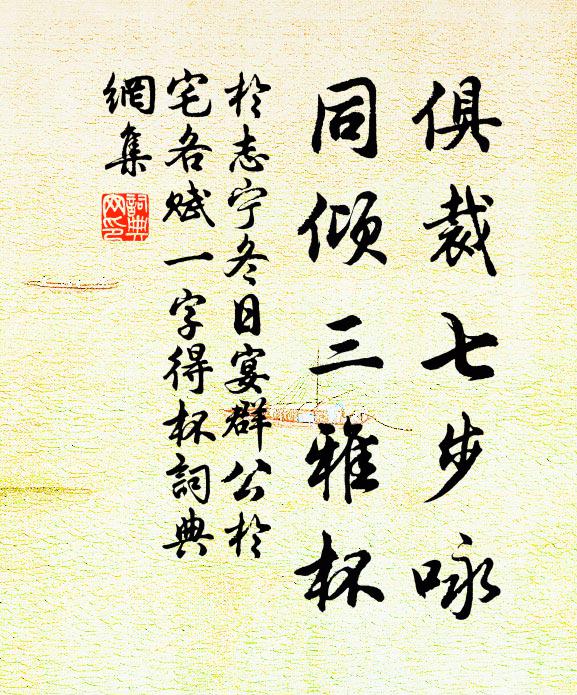 俱裁七步咏
同倾三雅杯
於志宁冬日宴群公於
宅各赋一字得杯詞典
網集
詞典
网印